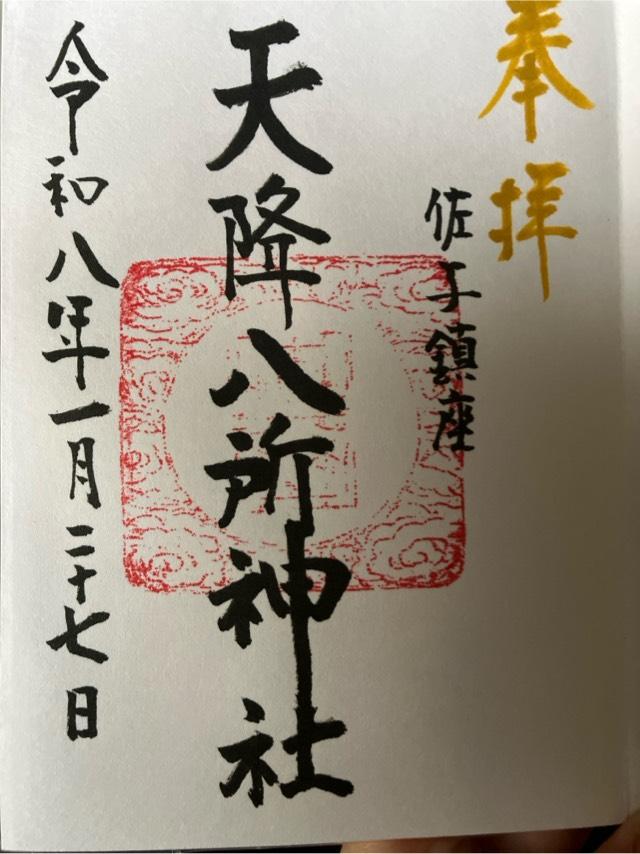 奉拝
佐手鎮座
天降八所神社
令和八年一月二十七日